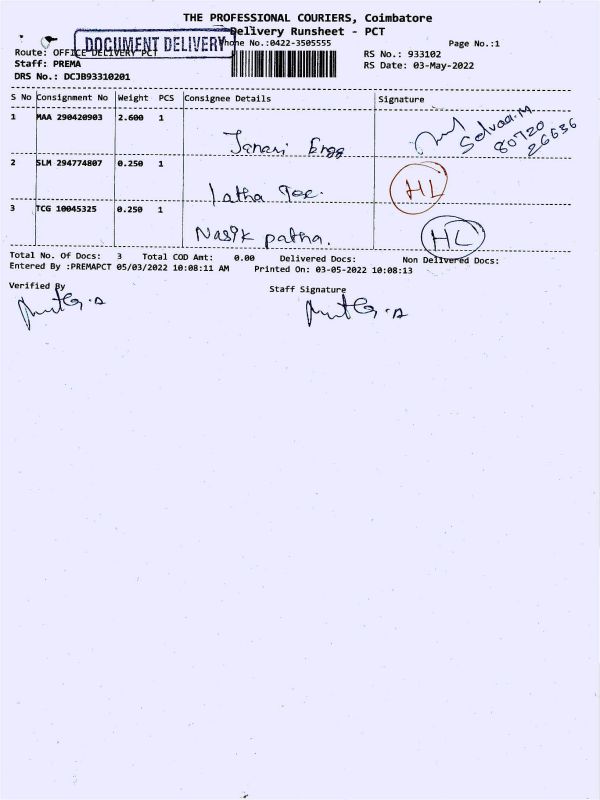 THE PROFESSIONAL COURIERS, Coimbatore
Delivery Runsheet - PCT
DOCUMENT DELIVERY
Phone No.:0422-3505555
Page No.:1
Route: OFFICE DELIVERY PCT
RS No.: 933102
Staff: PREMA
RS Date: 03-May-2022
DRS No.: DCJB93310201
S No Consignment No Weight PCS Consignee Details Signature
1 MAA 290420903 2.600 1
Janani Engg
Selvaa.M
80720
26636
2 SLM 294774807 0.250 1
Latha Tex.
HL
3 TCG 10045325 0.250 1
Nasik patha.
HL
Total No. Of Docs: 3 Total COD Amt: 0.00 Delivered Docs: Non Delivered Docs:
Entered By :PREMAPCT 05/03/2022 10:08:11 AM Printed On: 03-05-2022 10:08:13
Verified By
Staff Signature